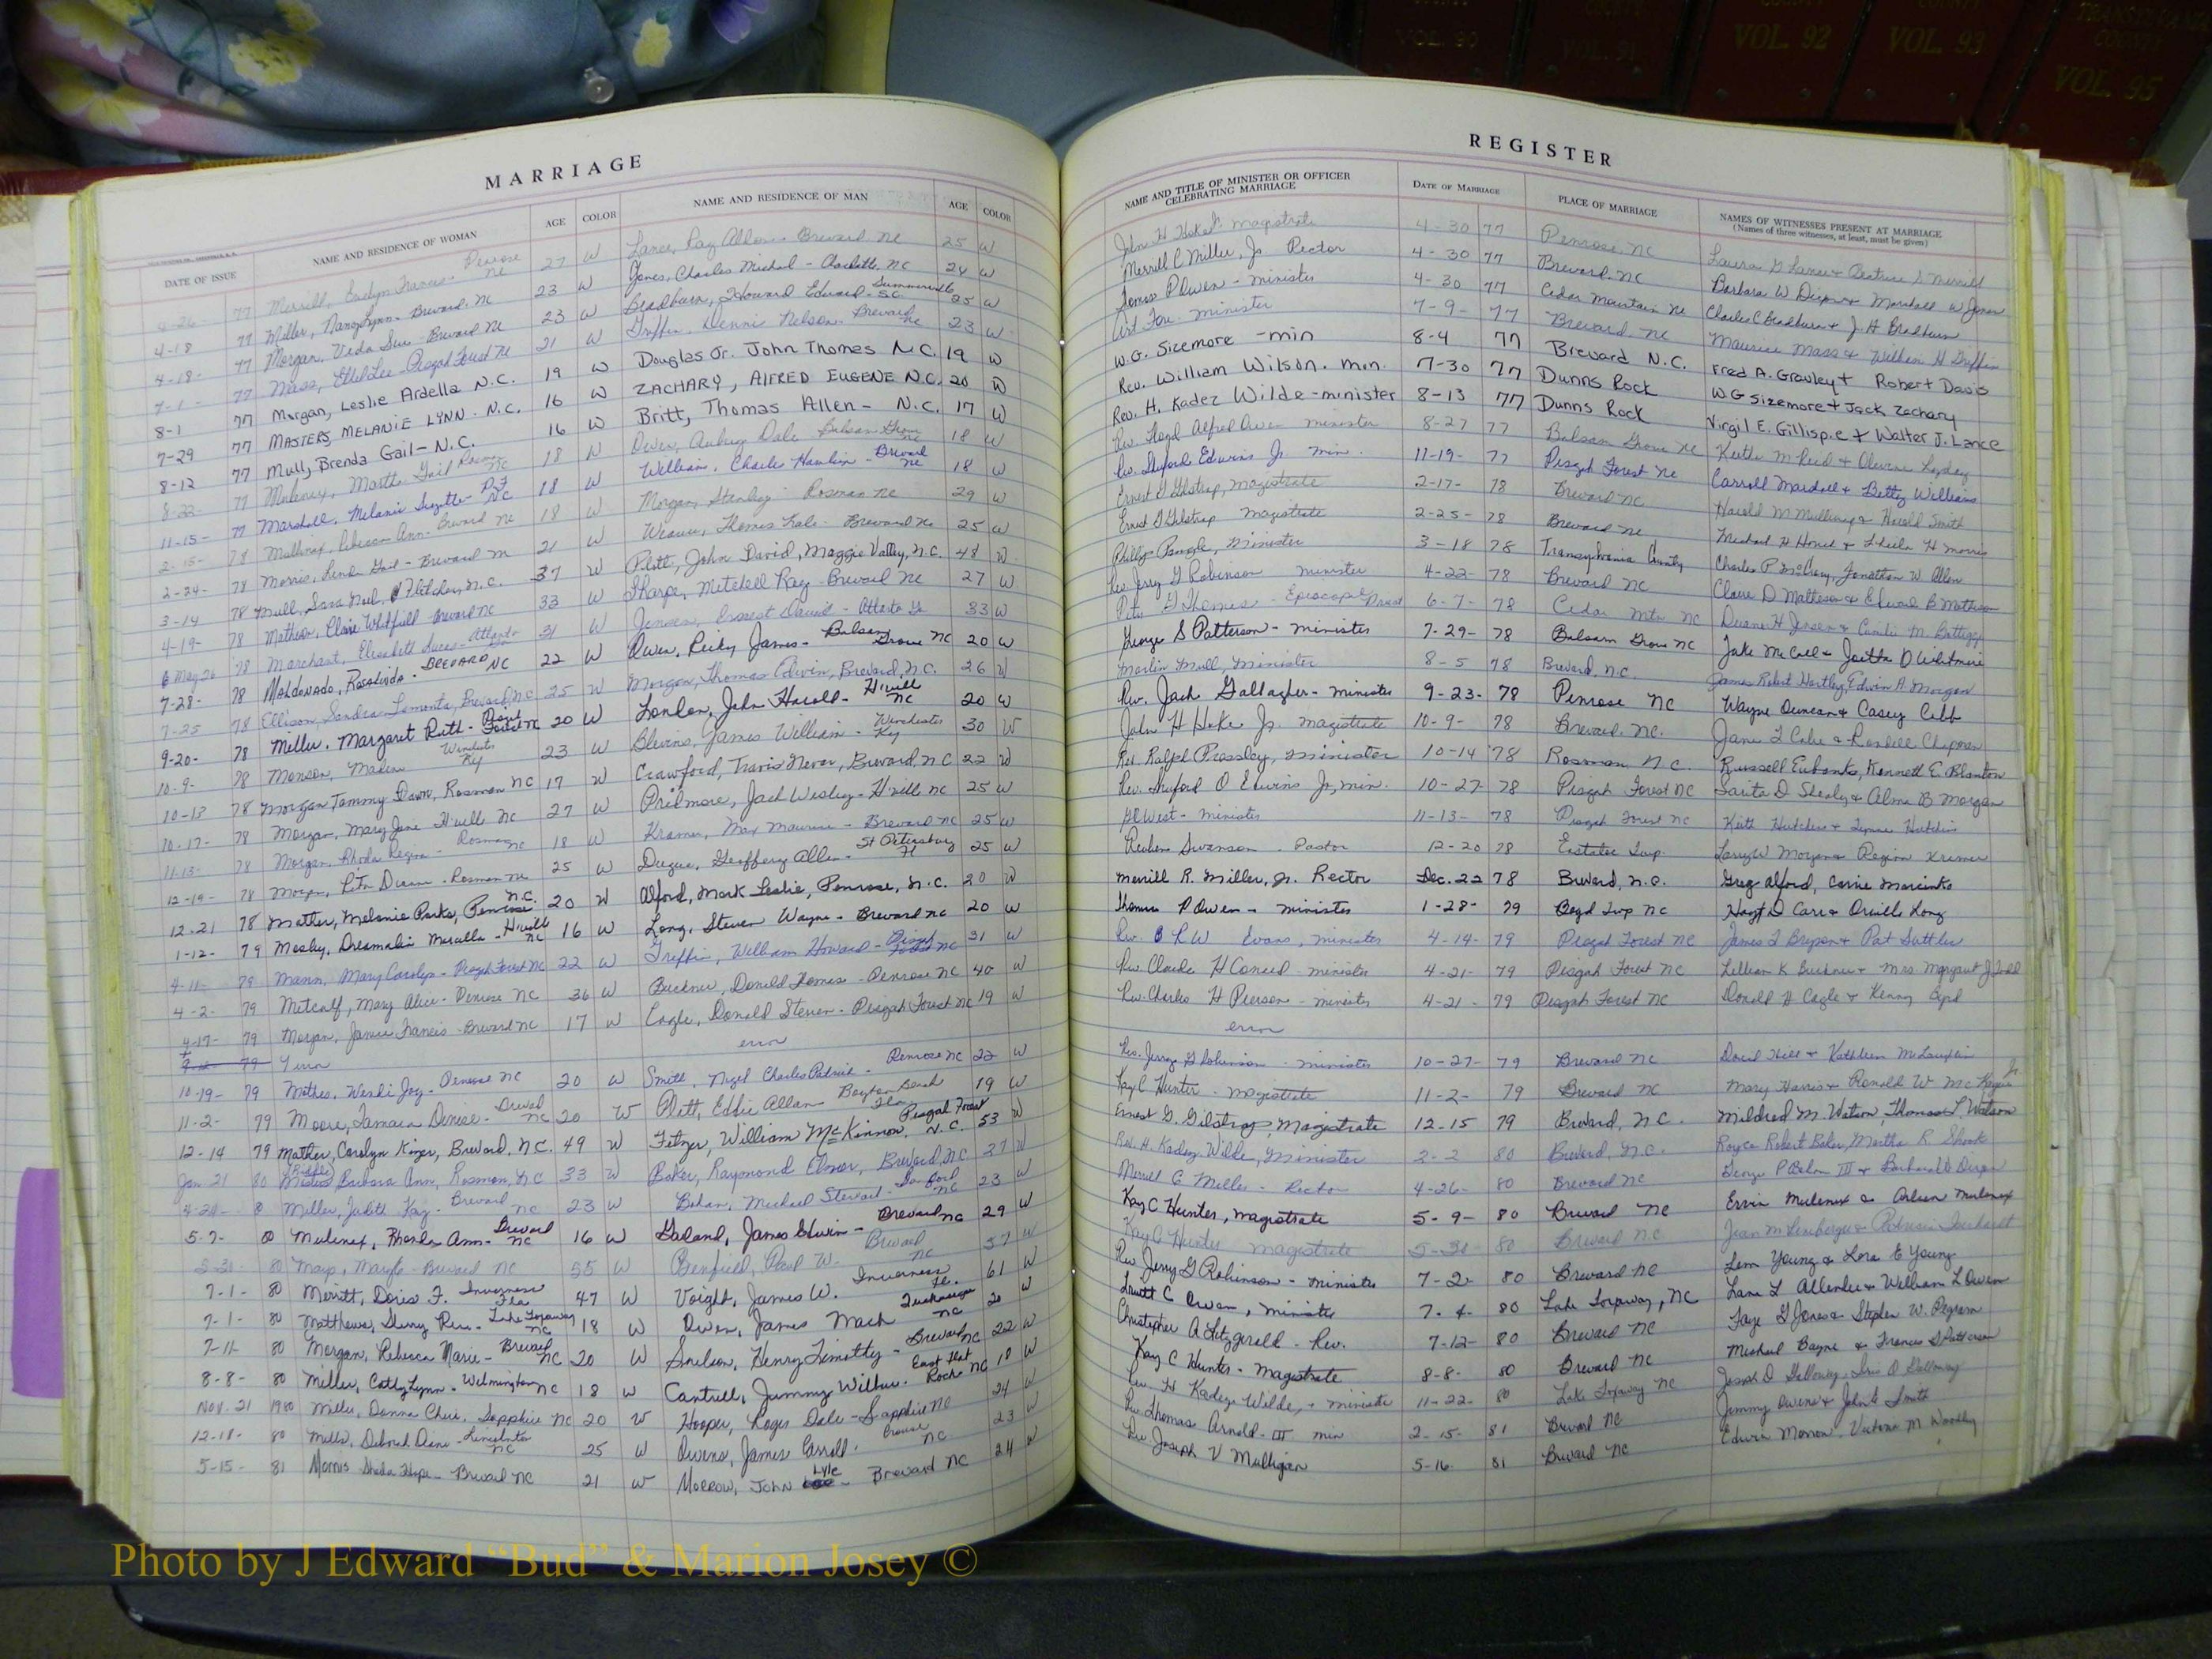 VOL. 90
VOL. 91
COUNTY
VOL. 92
COUNTY
VOL. 93
TRANSYLVANIA
COUNTY
VOL. 95
MARRIAGE
REGISTER
DATE OF ISSUE
NAME AND RESIDENCE OF WOMAN
AGE
COLOR
NAME AND RESIDENCE OF MAN
AGE
COLOR
NAME AND TITLE OF MINISTER OR OFFICER
CELEBRATING MARRIAGE
DATE OF MARRIAGE
PLACE OF MARRIAGE
NAMES OF WITNESSES PRESENT AT MARRIAGE
(Names of three witnesses, at least, must be given)
4-26 77 Merrill, Evelyn Frances - Penrose NC 27 W Lance, Ray Brevard NC 25 W magistrate 4-30 77 Penrose, NC
4-18 77 Miller, Nancy Lynn - Brevard, NC 23 W Jones, Charles Michael - Charlotte, NC 24 W Merrill C Miller, Jr Rector 4-30 77 Brevard, NC Barbara W Dixon + Marshall W Jones
4-18- 77 Morgan, Veda Sue - Brevard NC 23 W Bradburn, Howard Edward - Summerville S.C. 25 W Thomas P Owen - minister 4-30 77 Cedar Mountain NC Charles C Bradburn + J. H Bradburn
7-1- 77 Mass, Ethel Lee - Pisgah Forest NC 21 W Griffin, Dennis Nelson - Brevard NC 23 W minister 7-9- 77 Brevard, NC Maurice Mass + William H Griffin
8-1 77 Morgan, Leslie Ardella N.C. 19 W Douglas Jr. John Thomas N.C. 19 W W.G. Sizemore - min 8-4 77 Brevard N.C. Fred A. Gravley + Robert Davis
7-29 77 MASTERS, MELANIE LYNN - N.C. 16 W ZACHARY, AlFRED EUGENE N.C. 20 W Rev. William Wilson. min. 7-30 77 Dunns Rock W G Sizemore + Jack Zachary
8-12 77 Mull, Brenda Gail - N.C. 16 W Britt, Thomas Allen - N.C. 17 W Rev. H. Kadez Wilde - minister 8-13 77 Dunns Rock Virgil E. Gillispie + Walter J. Lance
8-22- 77 Martha Gail Rosman NC 18 W Owen, Aubrey Dale Balsam Grove NC 18 W Rev. Floyd Alfred Owen minister 8-27 77 Balsam Grove NC
11-15- 77 Marshall, Melanie Suzette - P.F. NC 18 W William, Charles Hamlin - Brevard NC 18 W Rev. Shuford Edwins Jr. min. 11-19- 77 Pisgah Forest NC Carroll Marshall + Betty Williams
2-15- 78 Mullinax, Rebecca Ann - Brevard NC 18 W Morgan, Stanley - Rosman NC 29 W Ernest G Gilstrap, magistrate 2-17- 78 Brevard NC Harold M Mullinax + Harold Smith
2-24- 78 Morris, Linda Gail - Brevard NC 21 W Weaver, Thomas - Brevard NC 25 W Ernest G Gilstrap magistrate 2-25- 78 Brevard NC
3-14 78 Mull, Sara Noel, Fletcher, N.C. 37 W Plott, John David, Maggie Valley, N.C. 48 W Phillip Pangle, Minister 3-18 78 Transylvania County Charles P. McCrary, Jonathan W. Allen
4-19- 78 Matheson, Claire Whitfield - Brevard NC 33 W Sharpe, Mitchell Ray - Brevard NC 27 W Rev Jerry G Robinson minister 4-22- 78 Brevard NC Claire D Matheson + Edward B Matheson
May 26 78 Marchant, Elizabeth - Atlanta 31 W Jensen, Ernest David - Atlanta Ga 33 W G Thomas - Episcopal Priest 6-7- 78 Cedar Mtn NC
7-28- 78 MALDONADO, Rosalinda - BREVARD NC 22 W Owen, Ricky James - Balsam Grove NC 20 W George S Patterson - minister 7-29- 78 Balsam Grove NC
7-25 78 Ellison, Sandra Lamonta, Brevard, NC 25 W Morgan, Thomas Edwin, Brevard, N.C. 26 W Marlin Mull, Minister 8-5 78 Brevard, N.C. James Robert Hartley, Edwin A. Morgan
9-20- 78 Miller, Margaret Ruth - Pisgah Forest NC 20 W London, John Harold - H'ville NC 20 W Rev. Jack Gallagher - minister 9-23- 78 Penrose NC Wayne Duncan + Casey Cobb
10-9- 78 Winchester Ky 23 W Blevins, James William - Winchester Ky 30 W John H Hoke Jr. magistrate 10-9- 78 Brevard, NC.
10-13 78 Morgan Tammy Dawn, Rosman NC 17 W Crawford, Travis Trevor, Brevard, NC 22 W Rev. Ralph Pressley, minister 10-14 78 Rosman, N.C. Russell Eubanks, Kenneth E. Blanton
10-17- 78 Morgan, Mary Jane - H'ville NC 27 W Pridmore, Jack Wesley - H'ville NC 25 W Rev. Shuford O Edwins Jr, min. 10-27- 78 Pisgah Forest NC + Alma B Morgan
11-13- 78 Morgan, Rhonda Regina - Rosman NC 18 W Kramer, Max Maurice - Brevard NC 25 W West - minister 11-13- 78 Pisgah Forest NC
12-19- 78 Morgan, Rita Diane - Rosman NC 25 W Geoffery Allen - St Petersburg Fl 25 W Reuben Swanson - Pastor 12-20 78 Eastatoe Twp. Larry W Morgan
12-21 78 Mather, Melanie Parks, Penrose N.C. 20 W Alford, Mark Leslie, Penrose, N.C. 20 W Merrill R. Miller, Jr. Rector Dec. 22 78 Brevard, N.C. Greg Alford, Carrie Marcinko
1-12- 79 Mosley, Marcella - H'ville NC 16 W Long, Steven Wayne - Brevard NC 20 W Thomas P Owen - minister 1-28- 79 Boyd Twp NC Hoyt D Carr + Orville Long
4-11- 79 Mann, Mary Carolyn - Pisgah Forest NC 22 W Griffin, William Howard - Pisgah Forest NC 31 W Rev. R W Evans, minister 4-14- 79 Pisgah Forest NC James T Bryson + Pat Suttles
4-2- 79 Metcalf, Mary Alice - Penrose NC 36 W Buckner, Donald Thomas - Penrose NC 40 W Rev. Claude H Coneed minister 4-21- 79 Pisgah Forest NC Lillian K Buckner + Mrs Margaret J
4-17- 79 Morgan, Janice Francis - Brevard NC 17 W Cagle, Donald Steven - Pisgah Forest NC 19 W Rev. Charles H Pierson - minister 4-21- 79 Pisgah Forest NC Donald H Cagle + Kenny Byrd
79 error error error
10-19- 79 Mather, Joy - Penrose NC 20 W Smith, Nigel Charles Patrick - Penrose NC 22 W Rev. Jerry G Robinson - minister 10-27- 79 Brevard NC David Hill + Kathleen McLaughlin
11-2- 79 Moore, Tamara Denise - Brevard NC 20 W Platt, Eddie Allan Boynton Beach Fla 19 W Kay C Hunter - magistrate 11-2- 79 Brevard NC Mary Harris + Ronald W
12-14 79 Mather, Carolyn Kizer, Brevard, N.C. 49 W Fetzer, William McKinnon, Pisgah Forest N.C. 53 W Ernest G. Gilstrap, Magistrate 12-15 79 Brevard, N.C. Mildred M. Watson, Thomas L. Watson
Jan 21 80 Barbara Ann, Rosman, NC 33 W Baker, Raymond Elmer, Brevard, NC 27 W Rev. H. Kadez Wilde, Minister 2-2 80 Brevard, N.C. Royce Robert Baker, Martha R Shook
Miller, Judith Kay - Brevard NC 23 W Behan, Michael Stewart - Sanford NC 23 W Merrill C Miller - Rector 4-26- 80 Brevard NC George P Behan III + Barbara W Dixon
5-7- 80 Mulenex, Rhonda Ann - Brevard NC 16 W Galand, James Edwin - Brevard NC 29 W Kay C Hunter, magistrate 5-9- 80 Brevard NC Ervin Mulenex + Arleen Mulenex
80 Brevard NC 55 W Benfield, Paul W. Brevard NC 57 W Kay C Hunter magistrate 80 Brevard NC
7-1- 80 Merritt, Doris F. Inverness Fla 47 W Voight, James W. Inverness Fl. 61 W Rev Jerry G Robinson - minister 7-2- 80 Brevard NC Lem Young & Lora E Young
7-1- 80 Matthews, Sherry - Lake Toxaway NC 18 W Owen, James Mack Tuckasegee NC 20 W C Owen, minister 7-4- 80 Lake Toxaway, NC Lane L + William L Owen
7-11- 80 Morgan, Rebecca Marie - Brevard NC 20 W Snelson, Henry Timothy - Brevard NC 22 W Christopher A Fitzgerald - Rev. 7-12- 80 Brevard NC Faye G Jones + Stephen W. Pegram
8-8- 80 Miller, Cathy Lynn - Wilmington NC 18 W Cantrell, Jimmy Wilbur - East Flat Rock NC 18 W Kay C Hunter - Magistrate 8-8- 80 Brevard NC Michael Bayne + Frances S Patterson
Nov. 21 1980 Miller, Donna Cheri, Sapphire NC 20 W Hooper, Roger Dale - Sapphire NC 24 W Rev. H Kadez Wilde, minister 11-22- 80 Lake Toxaway NC Joseph D Galloway
12-18- 80 Mills, Deborah Diane - Lincolnton NC 25 W Owens, James Carroll - Crouse NC 23 W Rev Thomas Arnold III min 2-15- 81 Brevard NC Jimmy Owens + John Smith
5-15- 81 Morris Sheila Hope - Brevard NC 21 W Morrow, John Lyle - Brevard NC 24 W Rev Joseph V Mulligan 5-16 81 Brevard NC Edwin Morrow
Photo by J Edward “Bud” & Marion Josey ©